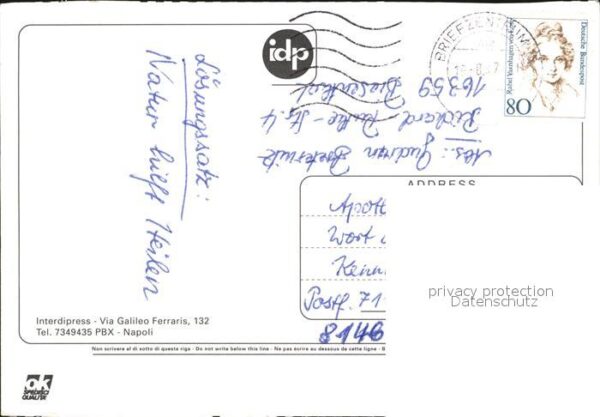 Lösungssatz:
Natur hilft Heilen
idp
BRIEFZENTRUM
Deutsche Bundespost
Rahel Varnhagen von Ense
80
Abs.: Gudrun
Richard
-Str. 4
16359 Biesenthal
ADDRESS
Apoth
Wort
Kenn
Postf. 71
8146
privacy protection
Datenschutz
Interdipress - Via Galileo Ferraris, 132
Tel. 7349435 PBX - Napoli
Non scrivere al di sotto di questa riga - Do not write below this line - Ne pas écrire au dessous de cette ligne - B
ok
SPEDISCI
QUALITÀ